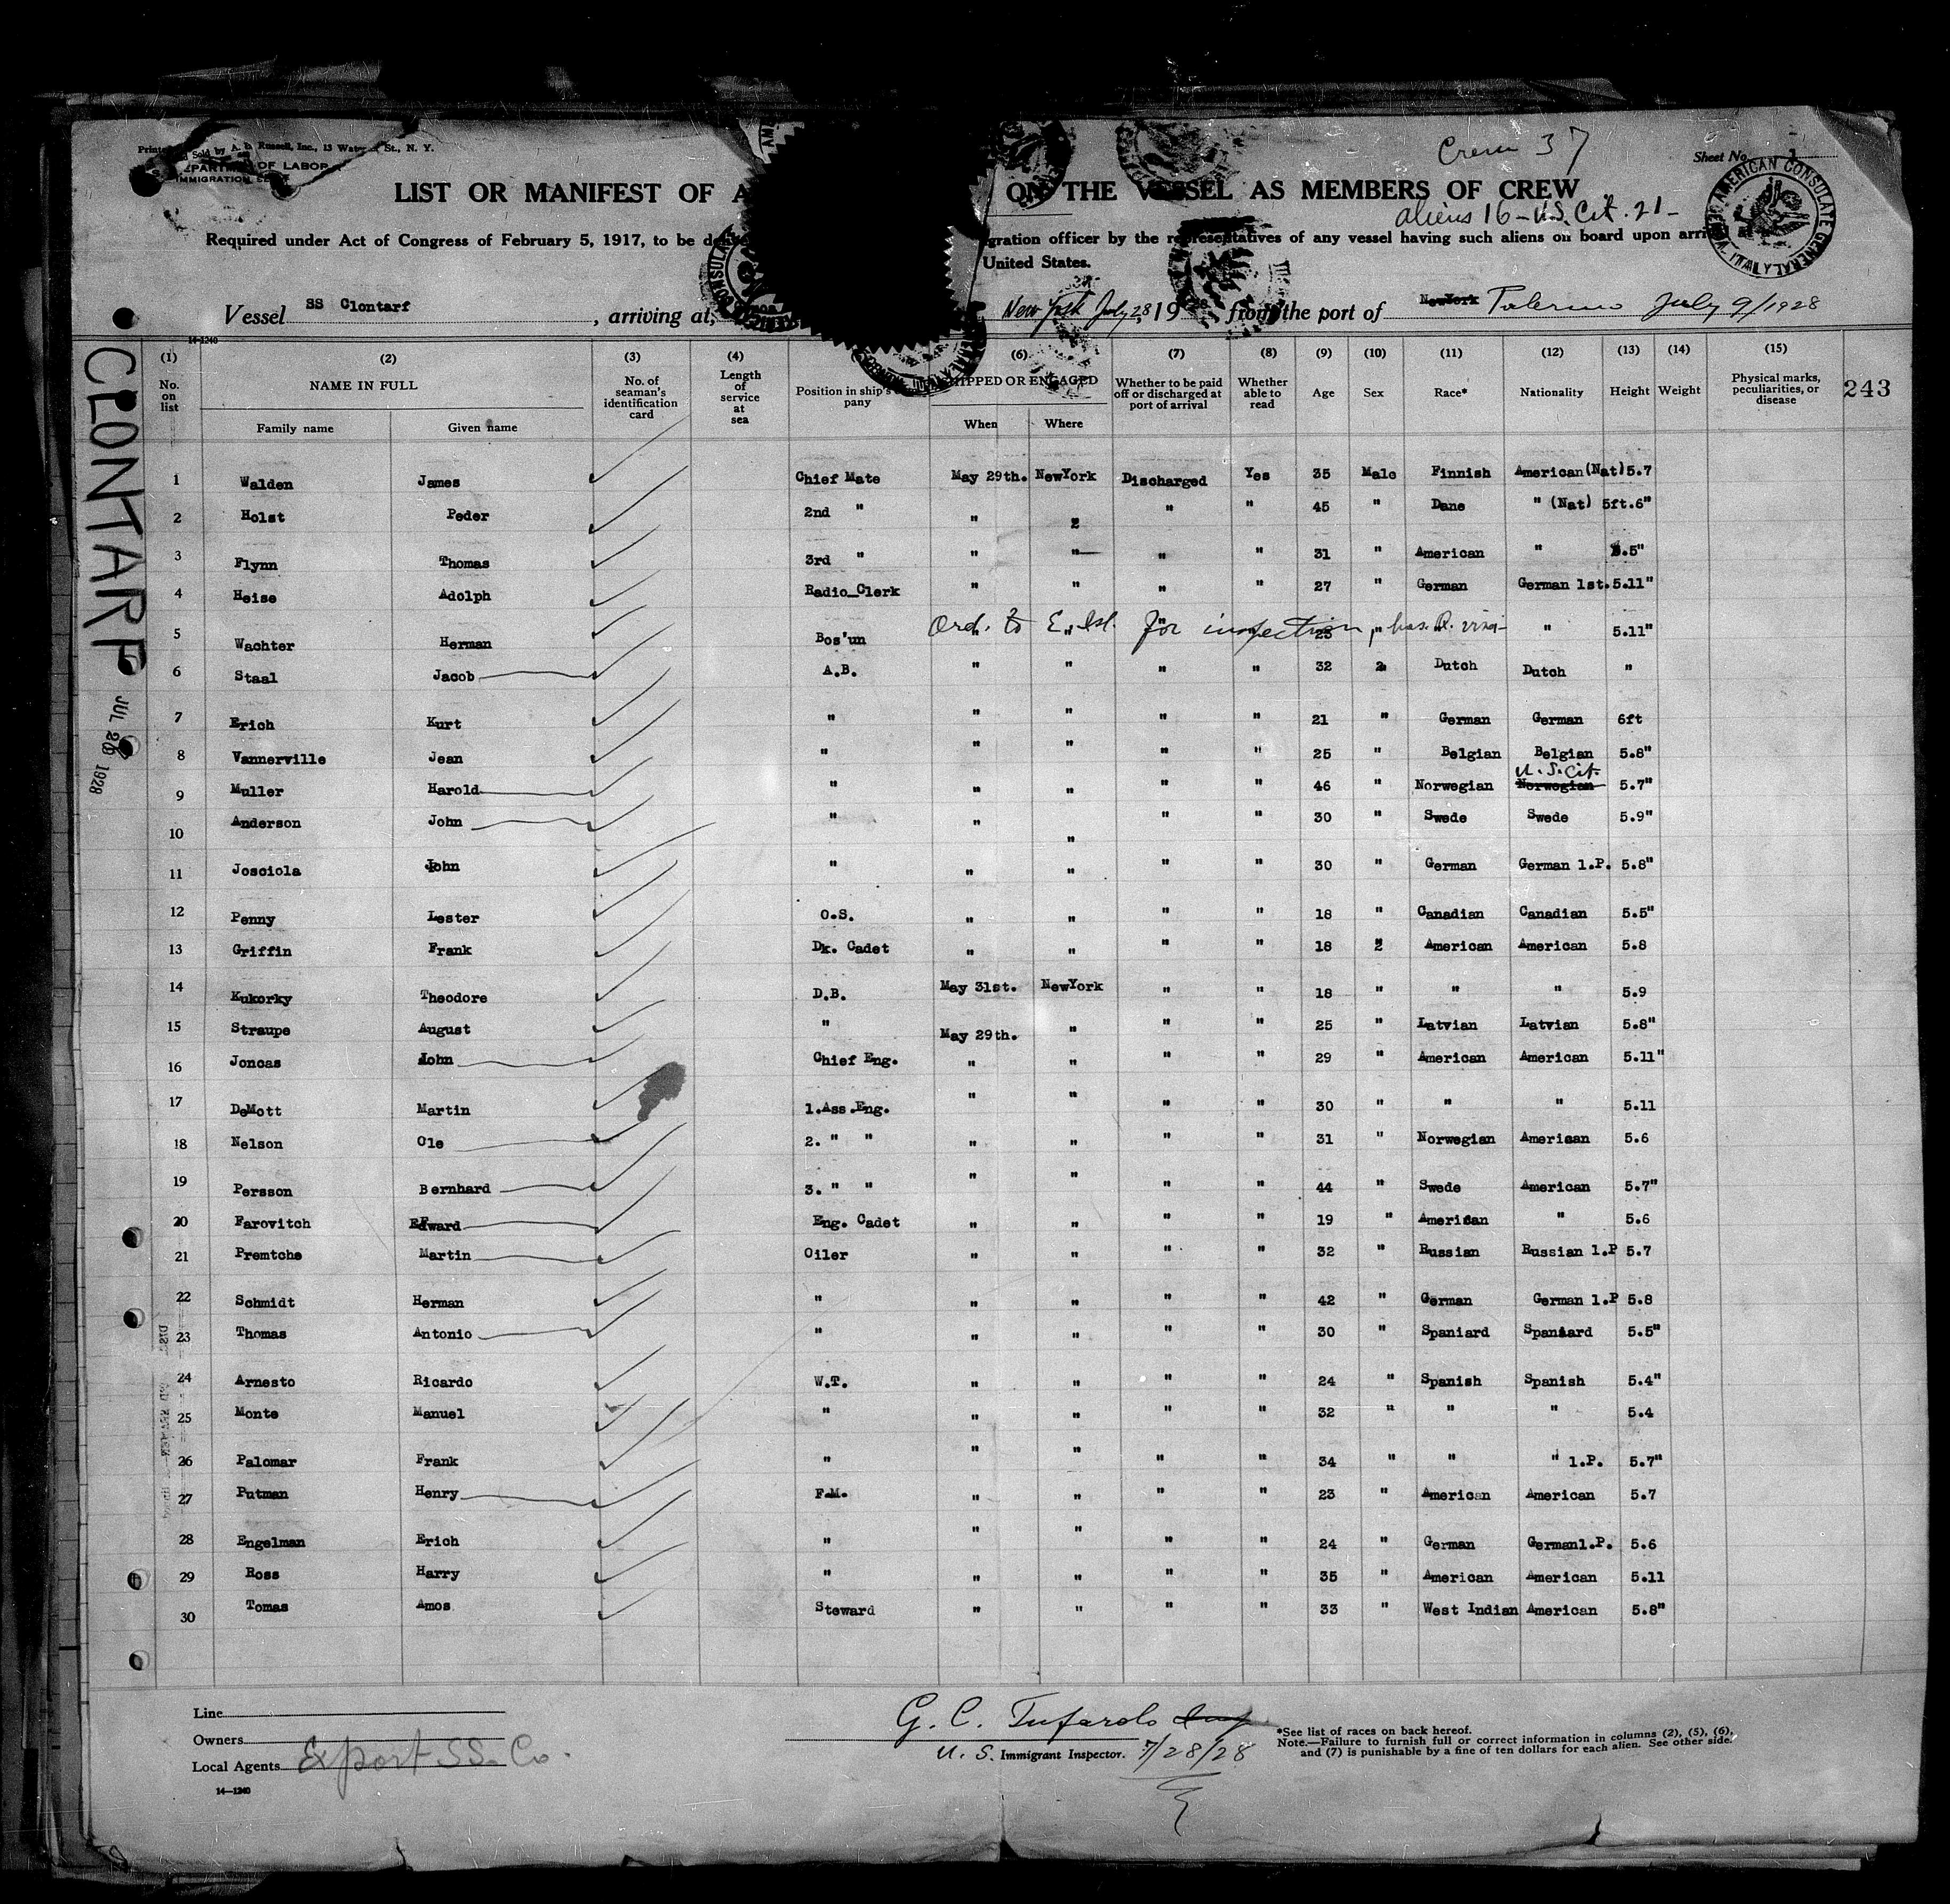 Crew 37
Printed and Sold by A. D. Russell, Inc., 13 Water St., N. Y.
Sheet No. 1
DEPARTMENT OF LABOR
IMMIGRATION SERVICE
LIST OR MANIFEST OF A ON THE VESSEL AS MEMBERS OF CREW
aliens 16 - U.S. Cit. 21 -
AMERICAN CONSULATE GENERAL ITALY
Required under Act of Congress of February 5, 1917, to be gration officer by the representatives of any vessel having such aliens on board upon arri
United States.
Vessel SS Clontarf , arriving at, New York July 28, 19 from the port of NewYork Palermo July 9/1928
14-1240
(1) (2) (3) (4) (6) (7) (8) (9) (10) (11) (12) (13) (14) (15)
No. on list NAME IN FULL No. of seaman's identification card Length of service at sea Position in ship's pany SHIPPED OR ENGAGED Whether to be paid off or discharged at port of arrival Whether able to read Age Sex Race* Nationality Height Weight Physical marks, peculiarities, or disease 243
Family name Given name When Where
1 Walden James Chief Mate May 29th. NewYork Discharged Yes 35 Male Finnish American(Nat) 5.7
2 Holst Peder 2nd " " 2 " " 45 " Dane " (Nat) 5ft.6"
3 Flynn Thomas 3rd " " " " " 31 " American " 5.5"
4 Heise Adolph Radio_Clerk " " " " 27 " German German 1st. 5.11"
Ord. to E. Isl. for inspection, has. R. visa-
5 Wachter Herman Bos'un " " " " 23 " " " 5.11"
6 Staal Jacob A.B. " " " " 32 2 Dutch Dutch "
7 Erich Kurt " " " " " 21 " German German 6ft
8 Vannerville Jean " " " " " 25 " Belgian Belgian 5.8"
U.S.Cit.
9 Muller Harold " " " " " 46 " Norwegian Norwegian 5.7"
10 Anderson John " " " " " 30 " Swede Swede 5.9"
11 Josciola John " " " " " 30 " German German 1.P. 5.8"
12 Penny Lester O.S. " " " " 18 " Canadian Canadian 5.5"
13 Griffin Frank Dk. Cadet " " " " 18 2 American American 5.8
14 Kukorky Theodore D.B. May 31st. NewYork " " 18 " " " 5.9
15 Straupe August " May 29th. " " " 25 " Latvian Latvian 5.8"
16 Joncas John Chief Eng. " " " " 29 " American American 5.11"
17 DeMott Martin 1.Ass.Eng. " " " " 30 " " " 5.11
18 Nelson Ole 2. " " " " " " 31 " Norwegian American 5.6
19 Persson Bernhard 3. " " " " " " 44 " Swede American 5.7"
20 Farovitch Edward Eng. Cadet " " " " 19 " American " 5.6
21 Premtchs Martin Oiler " " " " 32 " Russian Russian 1.P 5.7
22 Schmidt Herman " " " " " 42 " German German 1.P 5.8
23 Thomas Antonio " " " " " 30 " Spaniard Spaniard 5.5"
24 Arnesto Ricardo W.T. " " " " 24 " Spanish Spanish 5.4"
25 Monte Manuel " " " " " 32 " " " 5.4
26 Palomar Frank " " " " " 34 " " " 1.P. 5.7"
27 Putman Henry F.M. " " " " 23 " American American 5.7
28 Engelman Erich " " " " " 24 " German German1.P. 5.6
29 Ross Harry " " " " " 35 " American American 5.11
30 Tomas Amos Steward " " " " 33 " West Indian American 5.8"
CLONTARF
JUL 28 1928
Line
Owners
Local Agents Export SS. Co.
14-1240
G. C. Tufarolo Insp
U. S. Immigrant Inspector. 7/28/28
*See list of races on back hereof.
Note.—Failure to furnish full or correct information in columns (2), (5), (6),
and (7) is punishable by a fine of ten dollars for each alien. See other side.